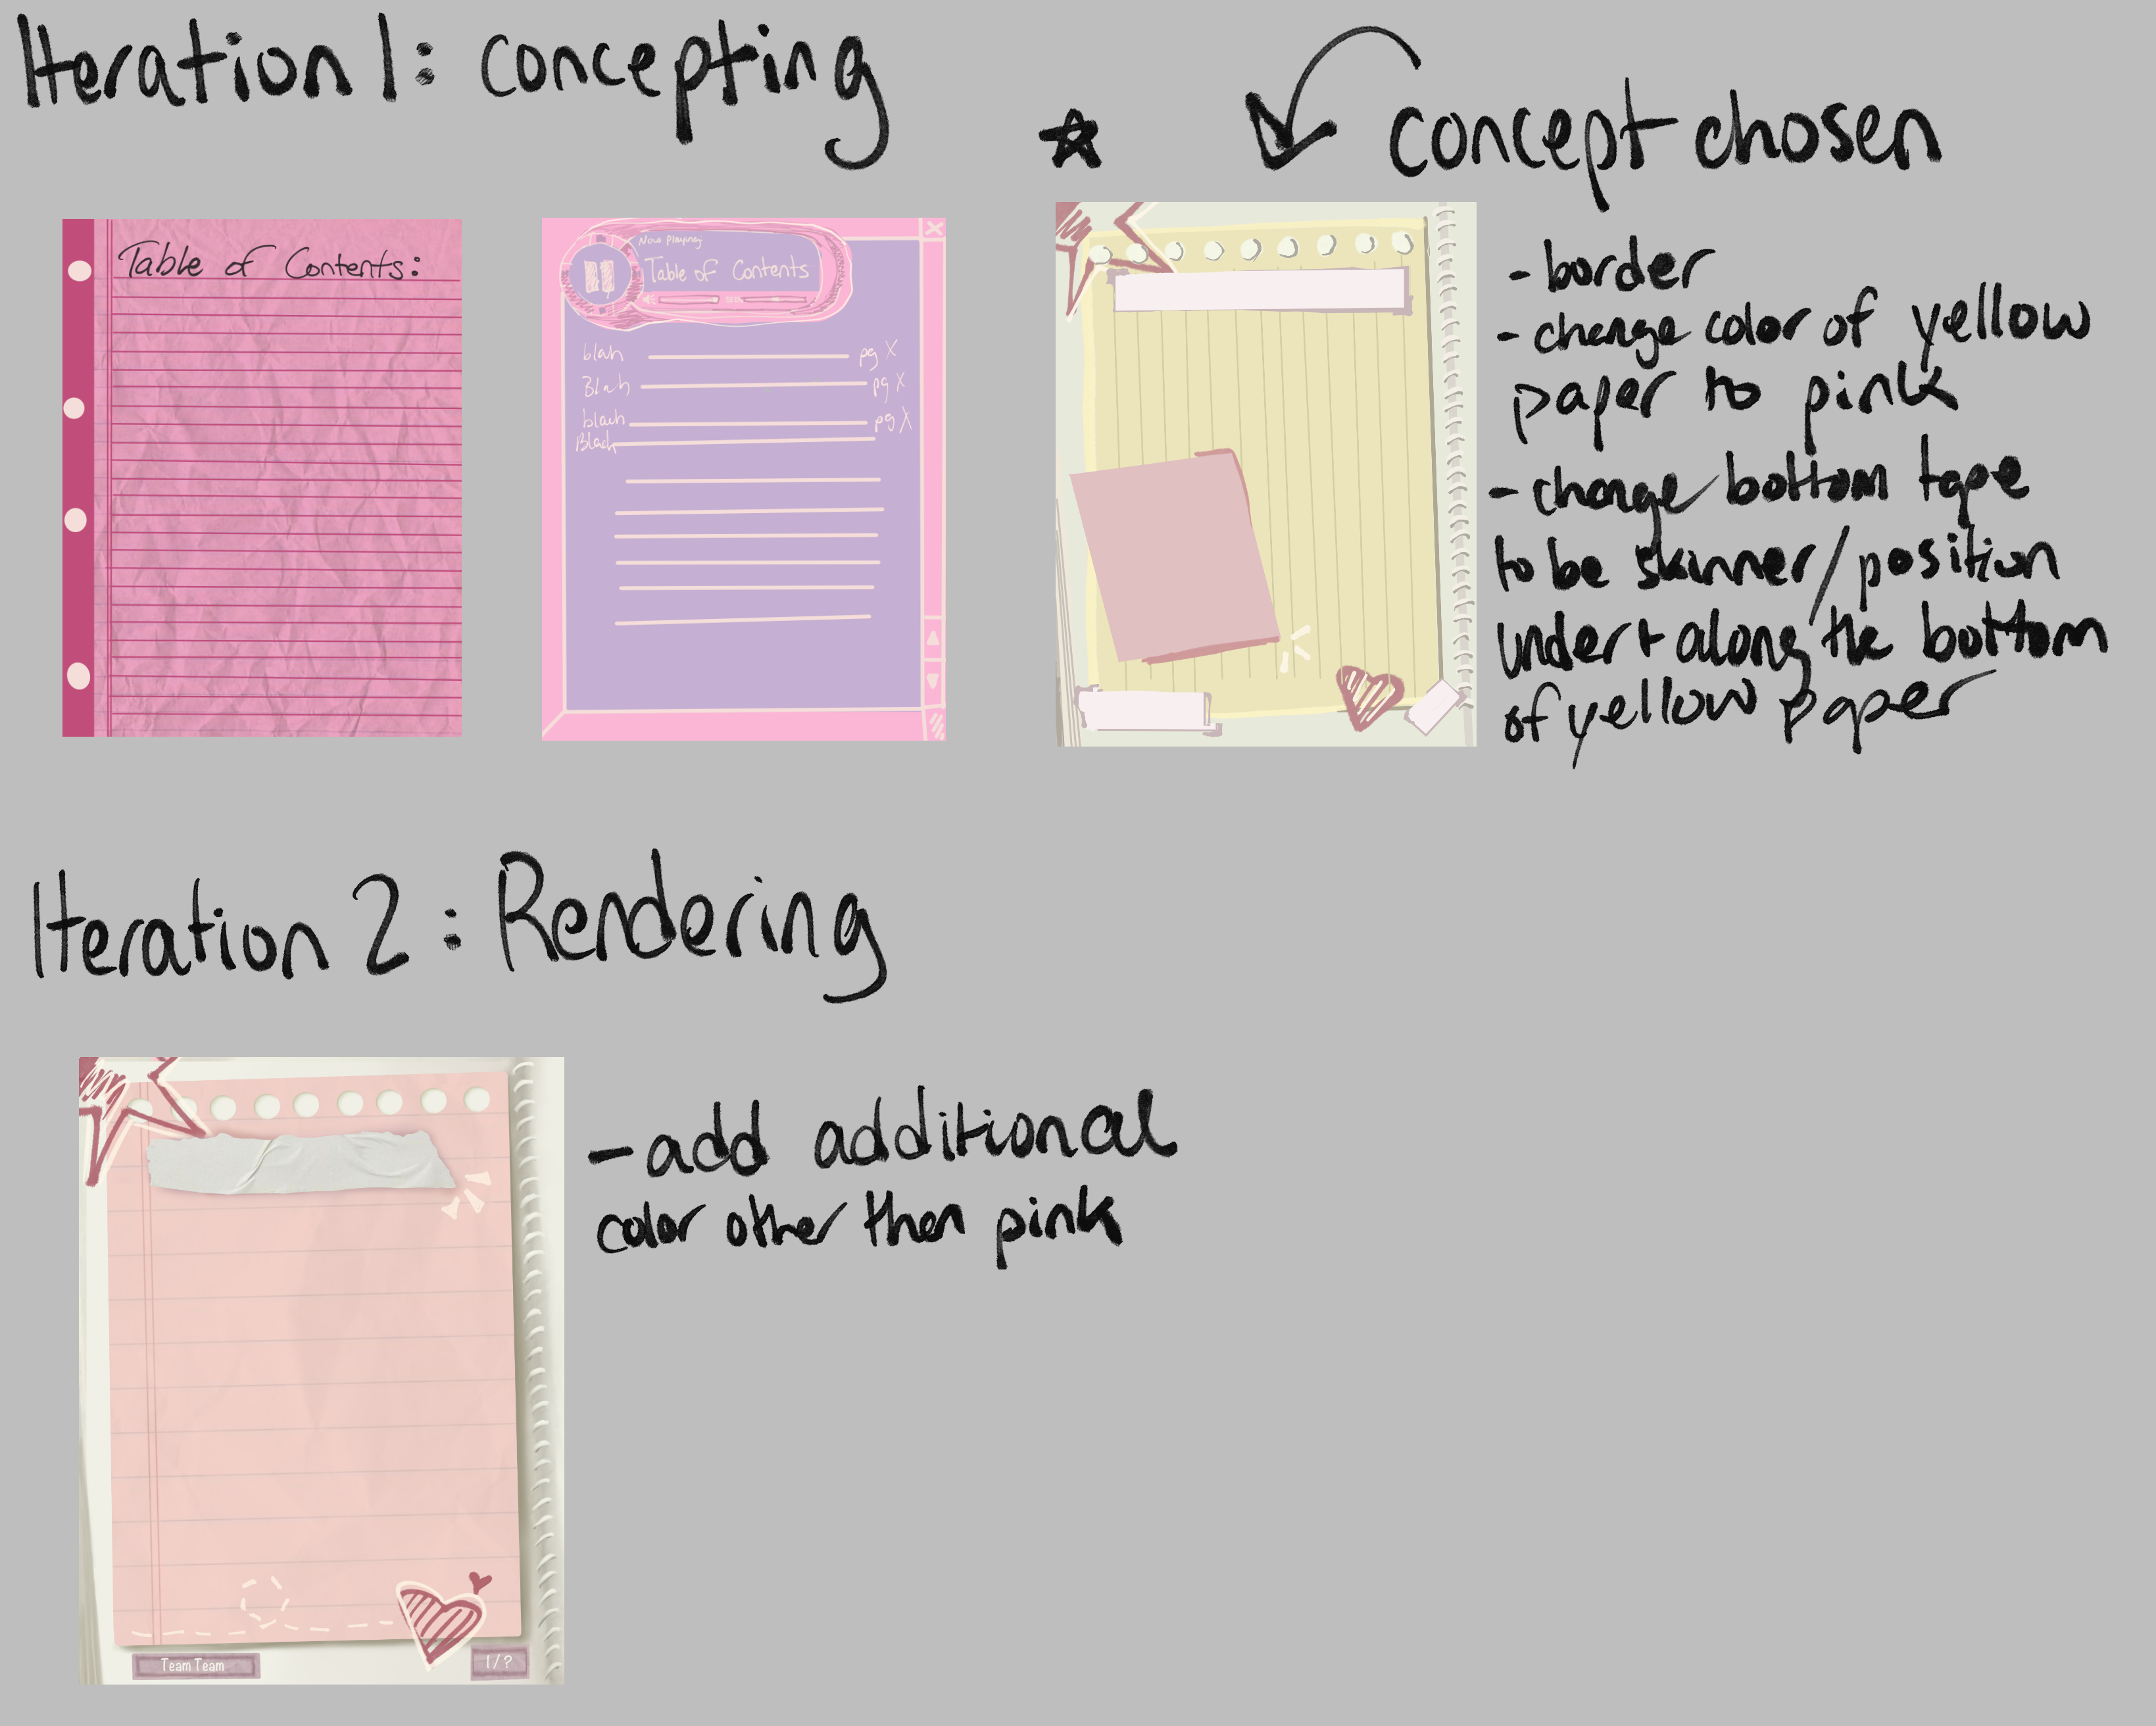 Iteration 1: concepting
concept chosen
Table of Contents:
Now playing
Table of Contents
blah pg X
Blah pg X
blach pg X
Blach
- border
- change color of yellow
paper to pink
- change bottom tape
to be skinner/position
under + along the bottom
of yellow paper
Iteration 2: Rendering
- add additional
color other then pink
Team Team
1/?